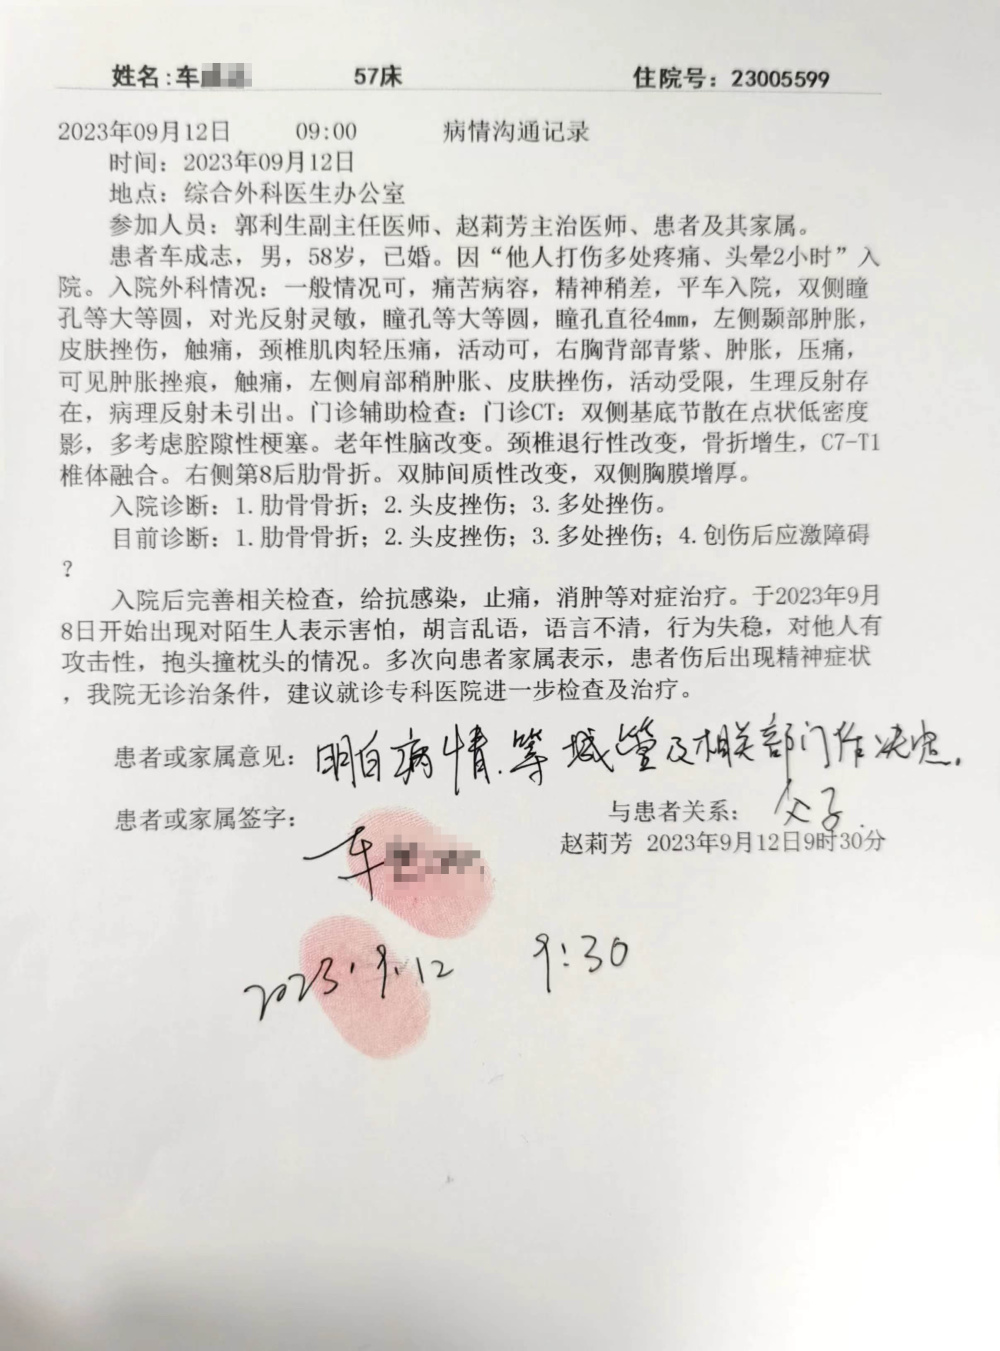 姓名:车 57床 住院号：23005599
2023年09月12日 09:00 病情沟通记录
时间：2023年09月12日
地点：综合外科医生办公室
参加人员：郭利生副主任医师、赵莉芳主治医师、患者及其家属。
患者车成志，男，58岁，已婚。因“他人打伤多处疼痛、头晕2小时”入
院。入院外科情况：一般情况可，痛苦病容，精神稍差，平车入院，双侧瞳
孔等大等圆，对光反射灵敏，瞳孔等大等圆，瞳孔直径4mm，左侧颞部肿胀，
皮肤挫伤，触痛，颈椎肌肉轻压痛，活动可，右胸背部青紫、肿胀，压痛，
可见肿胀挫痕，触痛，左侧肩部稍肿胀、皮肤挫伤，活动受限，生理反射存
在，病理反射未引出。门诊辅助检查：门诊CT：双侧基底节散在点状低密度
影，多考虑腔隙性梗塞。老年性脑改变。颈椎退行性改变，骨折增生，C7-T1
椎体融合。右侧第8后肋骨折。双肺间质性改变，双侧胸膜增厚。
入院诊断：1.肋骨骨折；2.头皮挫伤；3.多处挫伤。
目前诊断：1.肋骨骨折；2.头皮挫伤；3.多处挫伤；4.创伤后应激障碍
？
入院后完善相关检查，给抗感染，止痛，消肿等对症治疗。于2023年9月
8日开始出现对陌生人表示害怕，胡言乱语，语言不清，行为失稳，对他人有
攻击性，抱头撞枕头的情况。多次向患者家属表示，患者伤后出现精神症状
，我院无诊治条件，建议就诊专科医院进一步检查及治疗。
患者或家属意见：明白病情.等城管及相关部门作决定.
患者或家属签字： 与患者关系：父子.
赵莉芳 2023年9月12日9时30分
车
2023.9.12 9:30